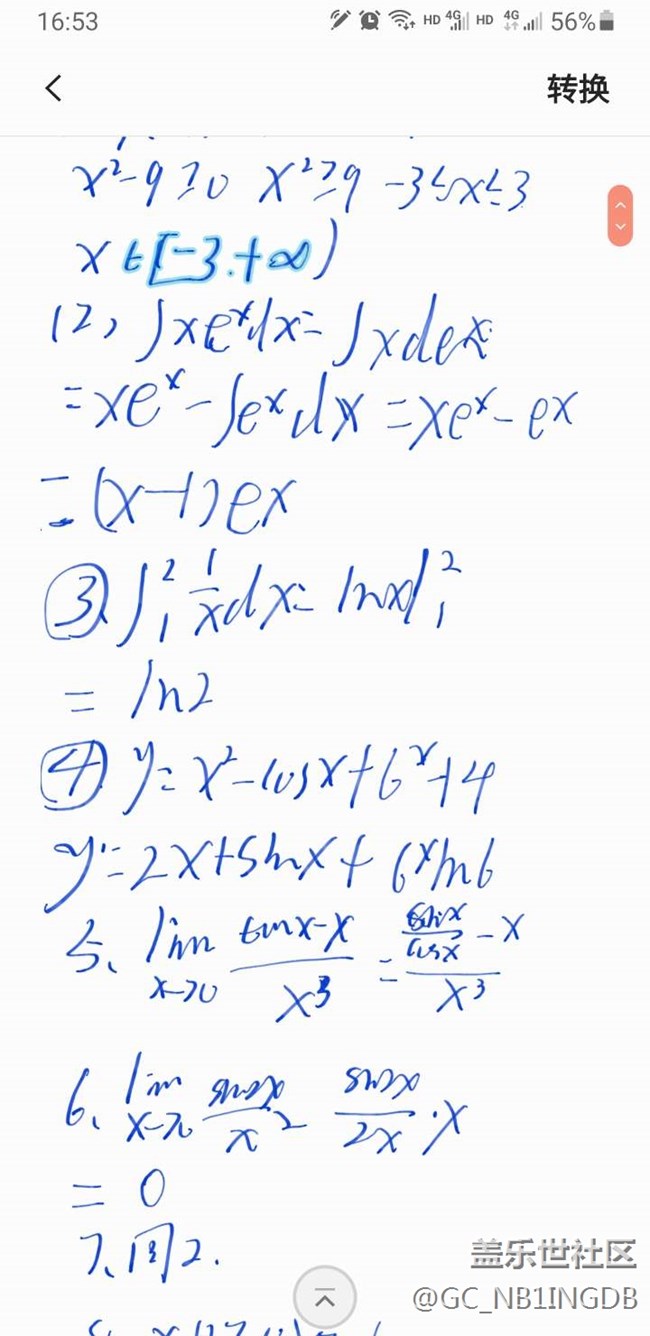 16:53 HD 4G HD 4G 56%
转换
x²-9≥0 x²≥9 -3≤x≤3
x∈[-3.+∞)
(2) ∫xeˣdx=∫xdex
=xeˣ-∫eˣdx=xeˣ-ex
=(x-1)ex
③ ∫₁² 1/x dx=lnx|₁²
=ln2
④ y=x²-cosx+6ˣ+4
y'=2x+sinx+6ˣln6
5、lim x→0 (tanx-x)/x³ = (sinx/cosx -x)/x³
6、lim x→0 sin2x/x² sin2x/2x ·x
=0
7、同2.
盖乐世社区
@GC_NB1INGDB